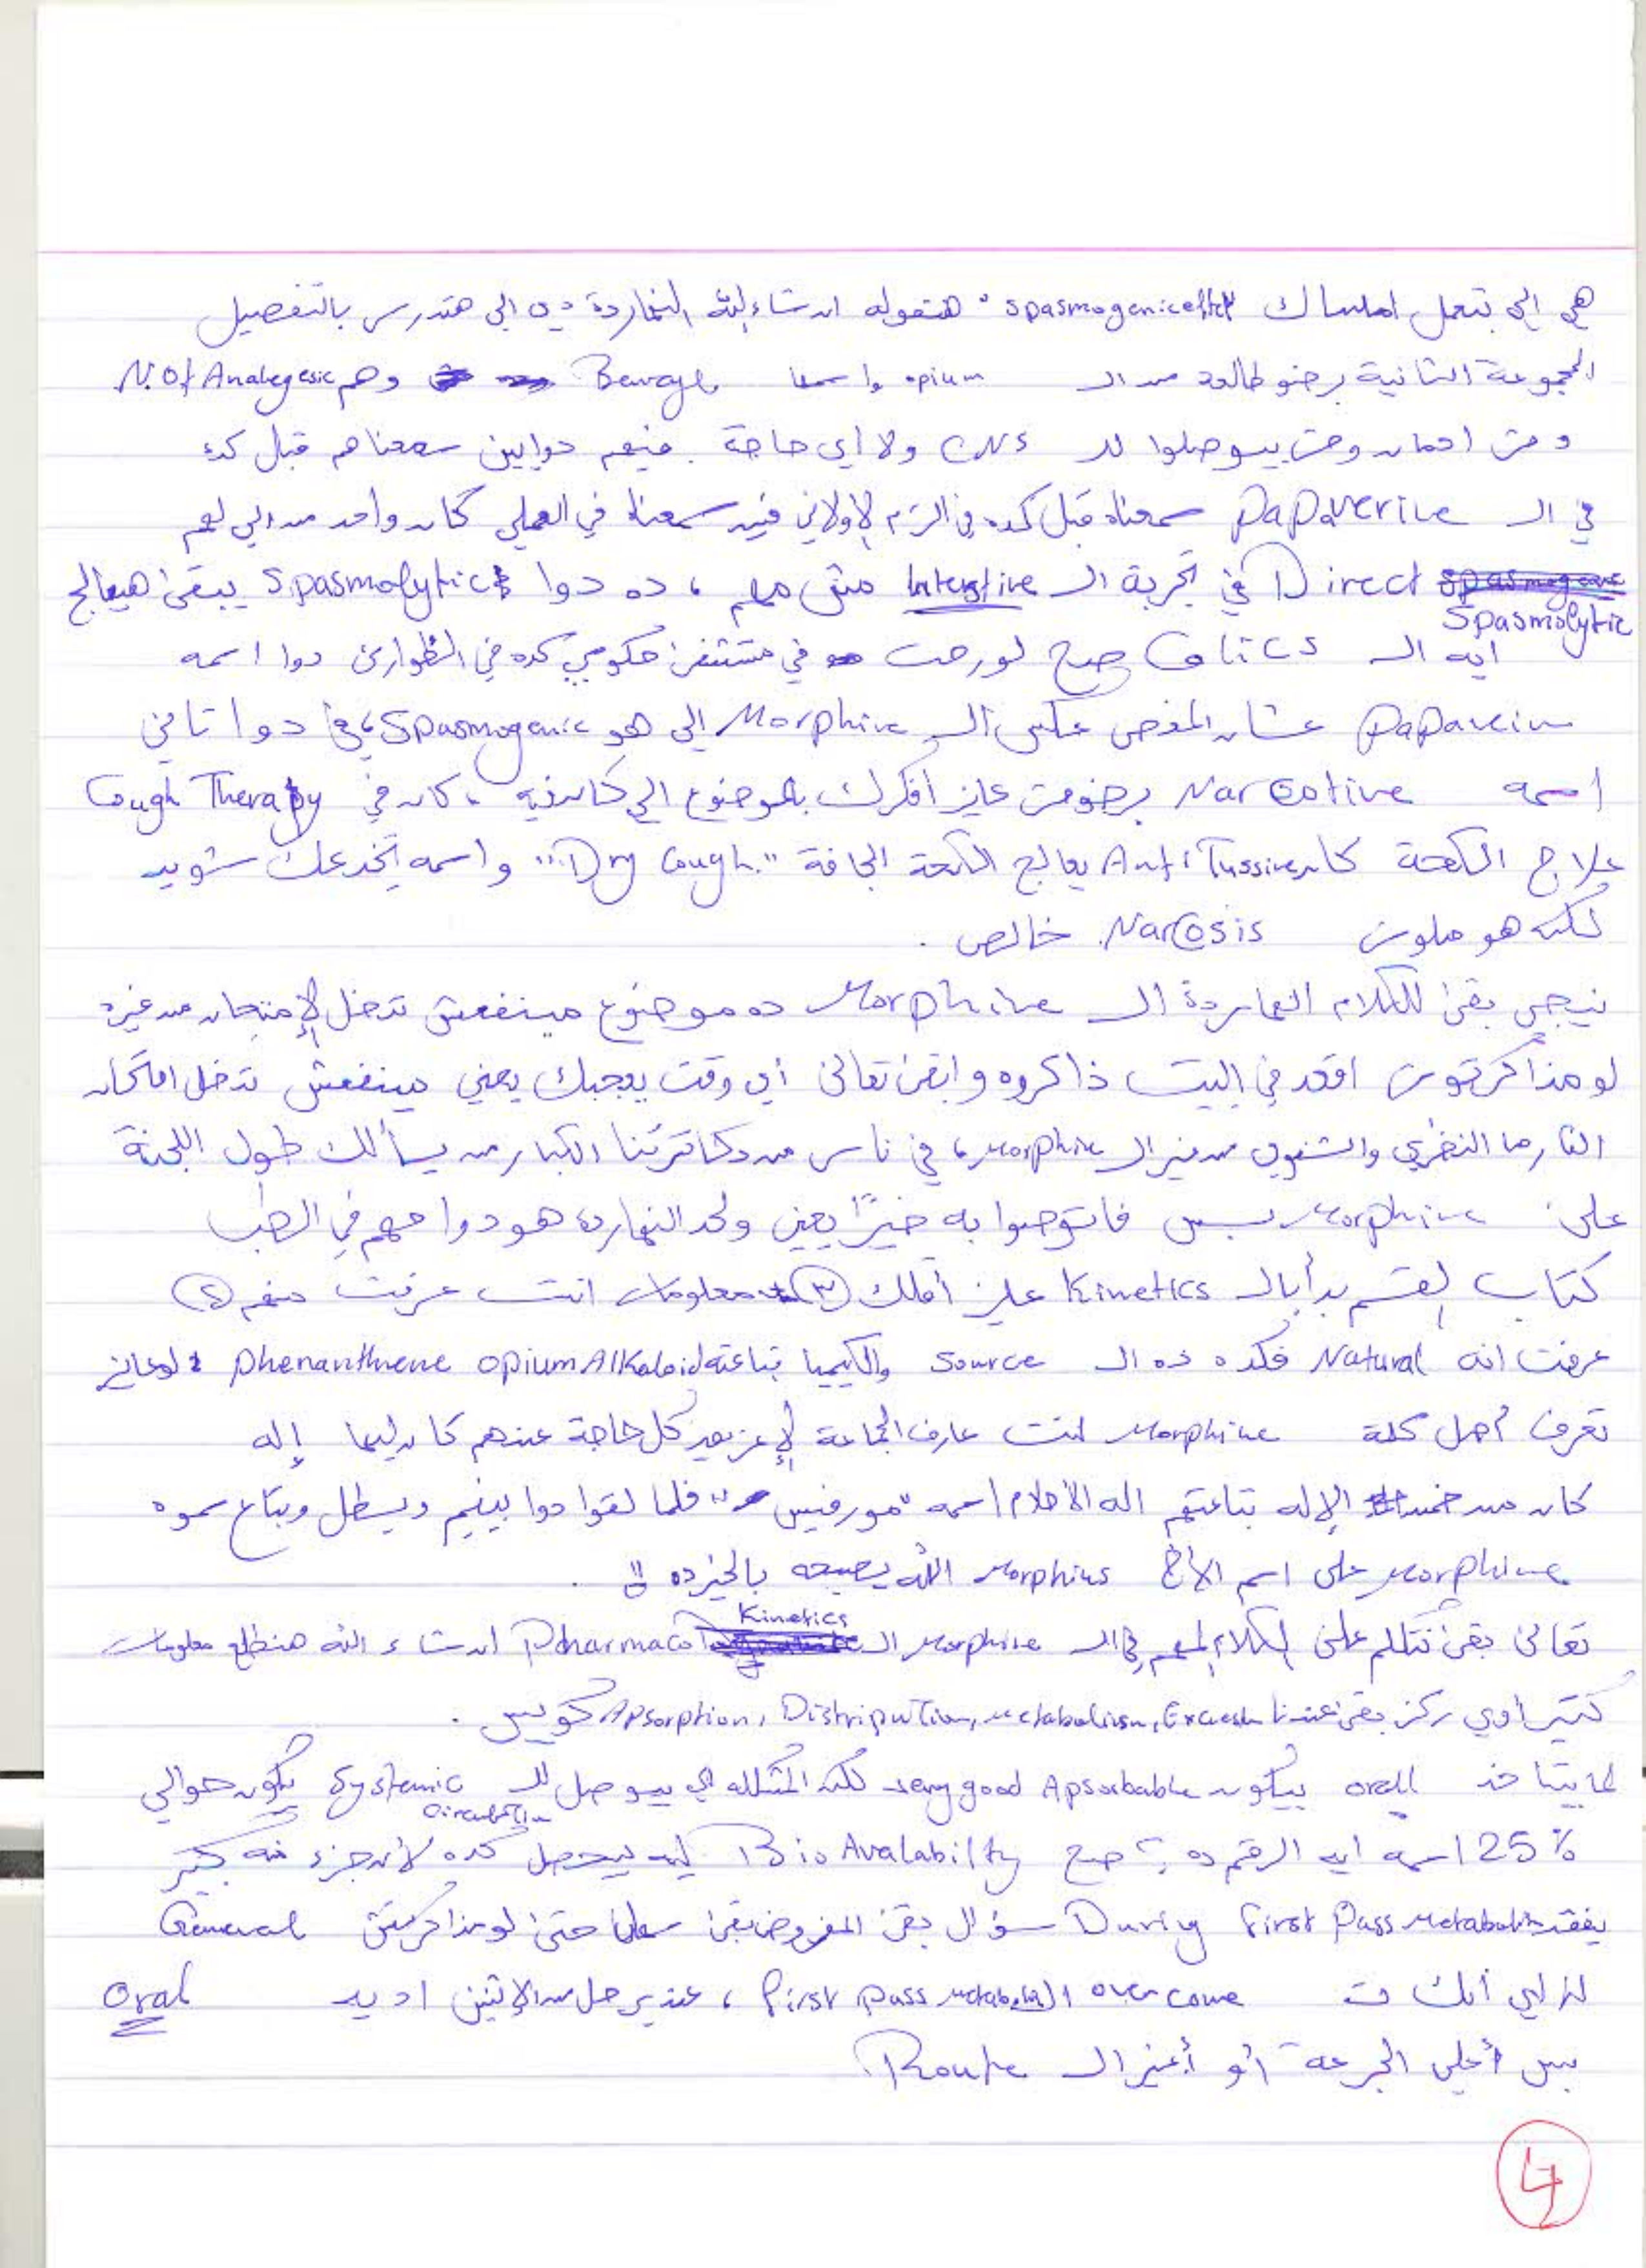 هي الي بتعمل امساك spasmogenic effect " هنقوله ان شاء الله النهاردة دي الي هتدرس بالتفصيل
المجموعة الثانية برضو طالعة من ال opium واسمها وهم Not Analegesic
ومش ادمان ومش بيوصلوا لل CNS ولا اي حاجة . فيهم دوايين سمعناهم قبل كدء
في ال Papaverine سمعناه قبل كده في الترم الاولاني فين سمعناه في العملي كان واحد من الي لهم
Direct Spasmolytic في تجربة ال Intenstive مش مهم ، ده دوا Spasmolytic يبقى هيعالج
ايه ال Colics صح لو رحت في مستشفى حكومي كده في الطوارئ دوا اسمه
Papavein عشان المغص عكس ال Morphine الي هو Spasmogenic ، في دوا تاني
اسمه Narcotine برضو مش عايز افكرك بالموضوع الي كان فيه ، كان في Cough Therapy
علاج الكحة كان Anti Tussive يعالج الكحة الجافة "Dry Cough" واسمه يخدعك شويه
لكنه هو ملوش Narcosis خالص .
نيجي بقى للكلام النهاردة ال Morphine ده موضوع مينفعش تدخل الإمتحان من غيره
لو مذاكرتوش اقعد في البيت ذاكروه وابقى تعالى أي وقت يعجبك يعني مينفعش تدخل امتحان
الفارما النظري والشفوي من غير ال Morphine ، في ناس من دكاترتنا الكبار من يسألك طول اللجنة
على Morphine بس فاتوصوا به خيرًا يعني ولحد النهارده هو دوا مهم في الطب
كتاب القسم بدأ بال Kinetics عايز أقلك ٣ معلومات انت عرفت منهم ٢
عرفت انه Natural فكده ده ال Source والكيميا بتاعته phenanthrene opium Alkaloid لو عايز
تعرف أصل كلمة Morphine انت عارف الجماعة الإغريق كل حاجة عندهم كان ليها إله
كان من ضمن الإله بتاعتهم اله الأحلام اسمه "مورفيس" فلما لقوا دوا بينيم ويسطل وبتاع سموه
Morphine على اسم الأخ Morphius الله يصبحه بالخير ده !!
تعالى بقى نتكلم على الكلام المهم في ال Morphine ال Pharmaco Kinetics ان شاء الله هنطلع معلومات
كتير اوي ركز بقى عندنا Apsorption, Distripution, Metabolism, Excretion كويس .
لما بيتاخد oral بيكون very good Apsorbable لكن المشكله الي بيوصل لل Systemic Circulation يكون حوالي
25% اسمه ايه الرقم ده ؟ صح Bio Avalability ليه بيحصل كده لأن جزء منه كبير
يفقد During first Pass Metabolism سؤال بقى المفروض يبقى سهل حتى لو مذاكرتش General
إزاي أنك overcome ال first pass metabolism ، عندي حل من الإتنين اديه Oral
بس أعلى الجرعة أو أغير ال Route
4